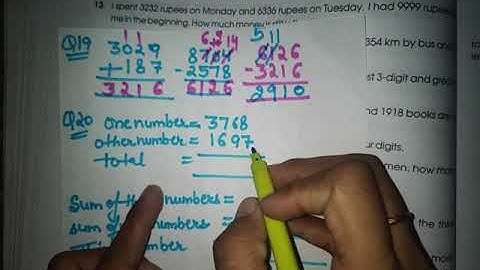 13. I spent 3232 rupees on Monday and 6336 rupees on Tuesday. I had 9999 rupees
me in the beginning. How much money is
Q19
1 1
3029
+ 187
3216
6,2 14
8704
- 2578
6126
5 11
6126
- 3216
2910
354 km by bus and
st 3-digit and
nd 1918 books are
ur digits.
men, how
the
Q20 one number = 3768
other number = 1697
total =
Sum of numbers =
sum numbers =
number